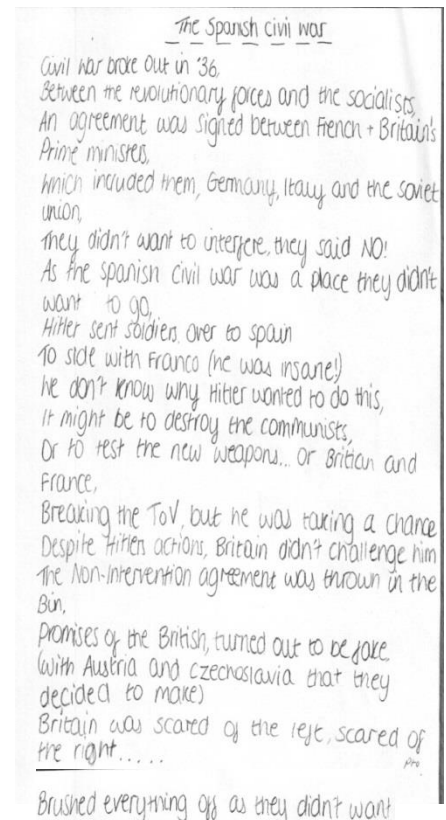 The Spanish civil war
Civil war broke out in '36,
Between the revolutionary forces and the socialists,
An agreement was signed between French + Britain's
Prime ministers,
which included them, Germany, Italy and the soviet
union,
They didn't want to interfere, they said NO!
As the spanish civil war was a place they didn't
want to go,
Hitler sent soldiers over to spain
To side with Franco (he was insane!)
We don't know why Hitler wanted to do this,
It might be to destroy the communists,
Or to test the new weapons... or Britian and
France,
Breaking the ToV, but he was taking a chance
Despite Hitlers actions, Britain didn't challenge him
The Non-Intervention agreement was thrown in the
Bin,
Promises of the British, turned out to be fake
(with Austria and czechoslavia that they
decided to make)
Britain was scared of the left, scared of
the right.....
Brushed everything off as they didn't want